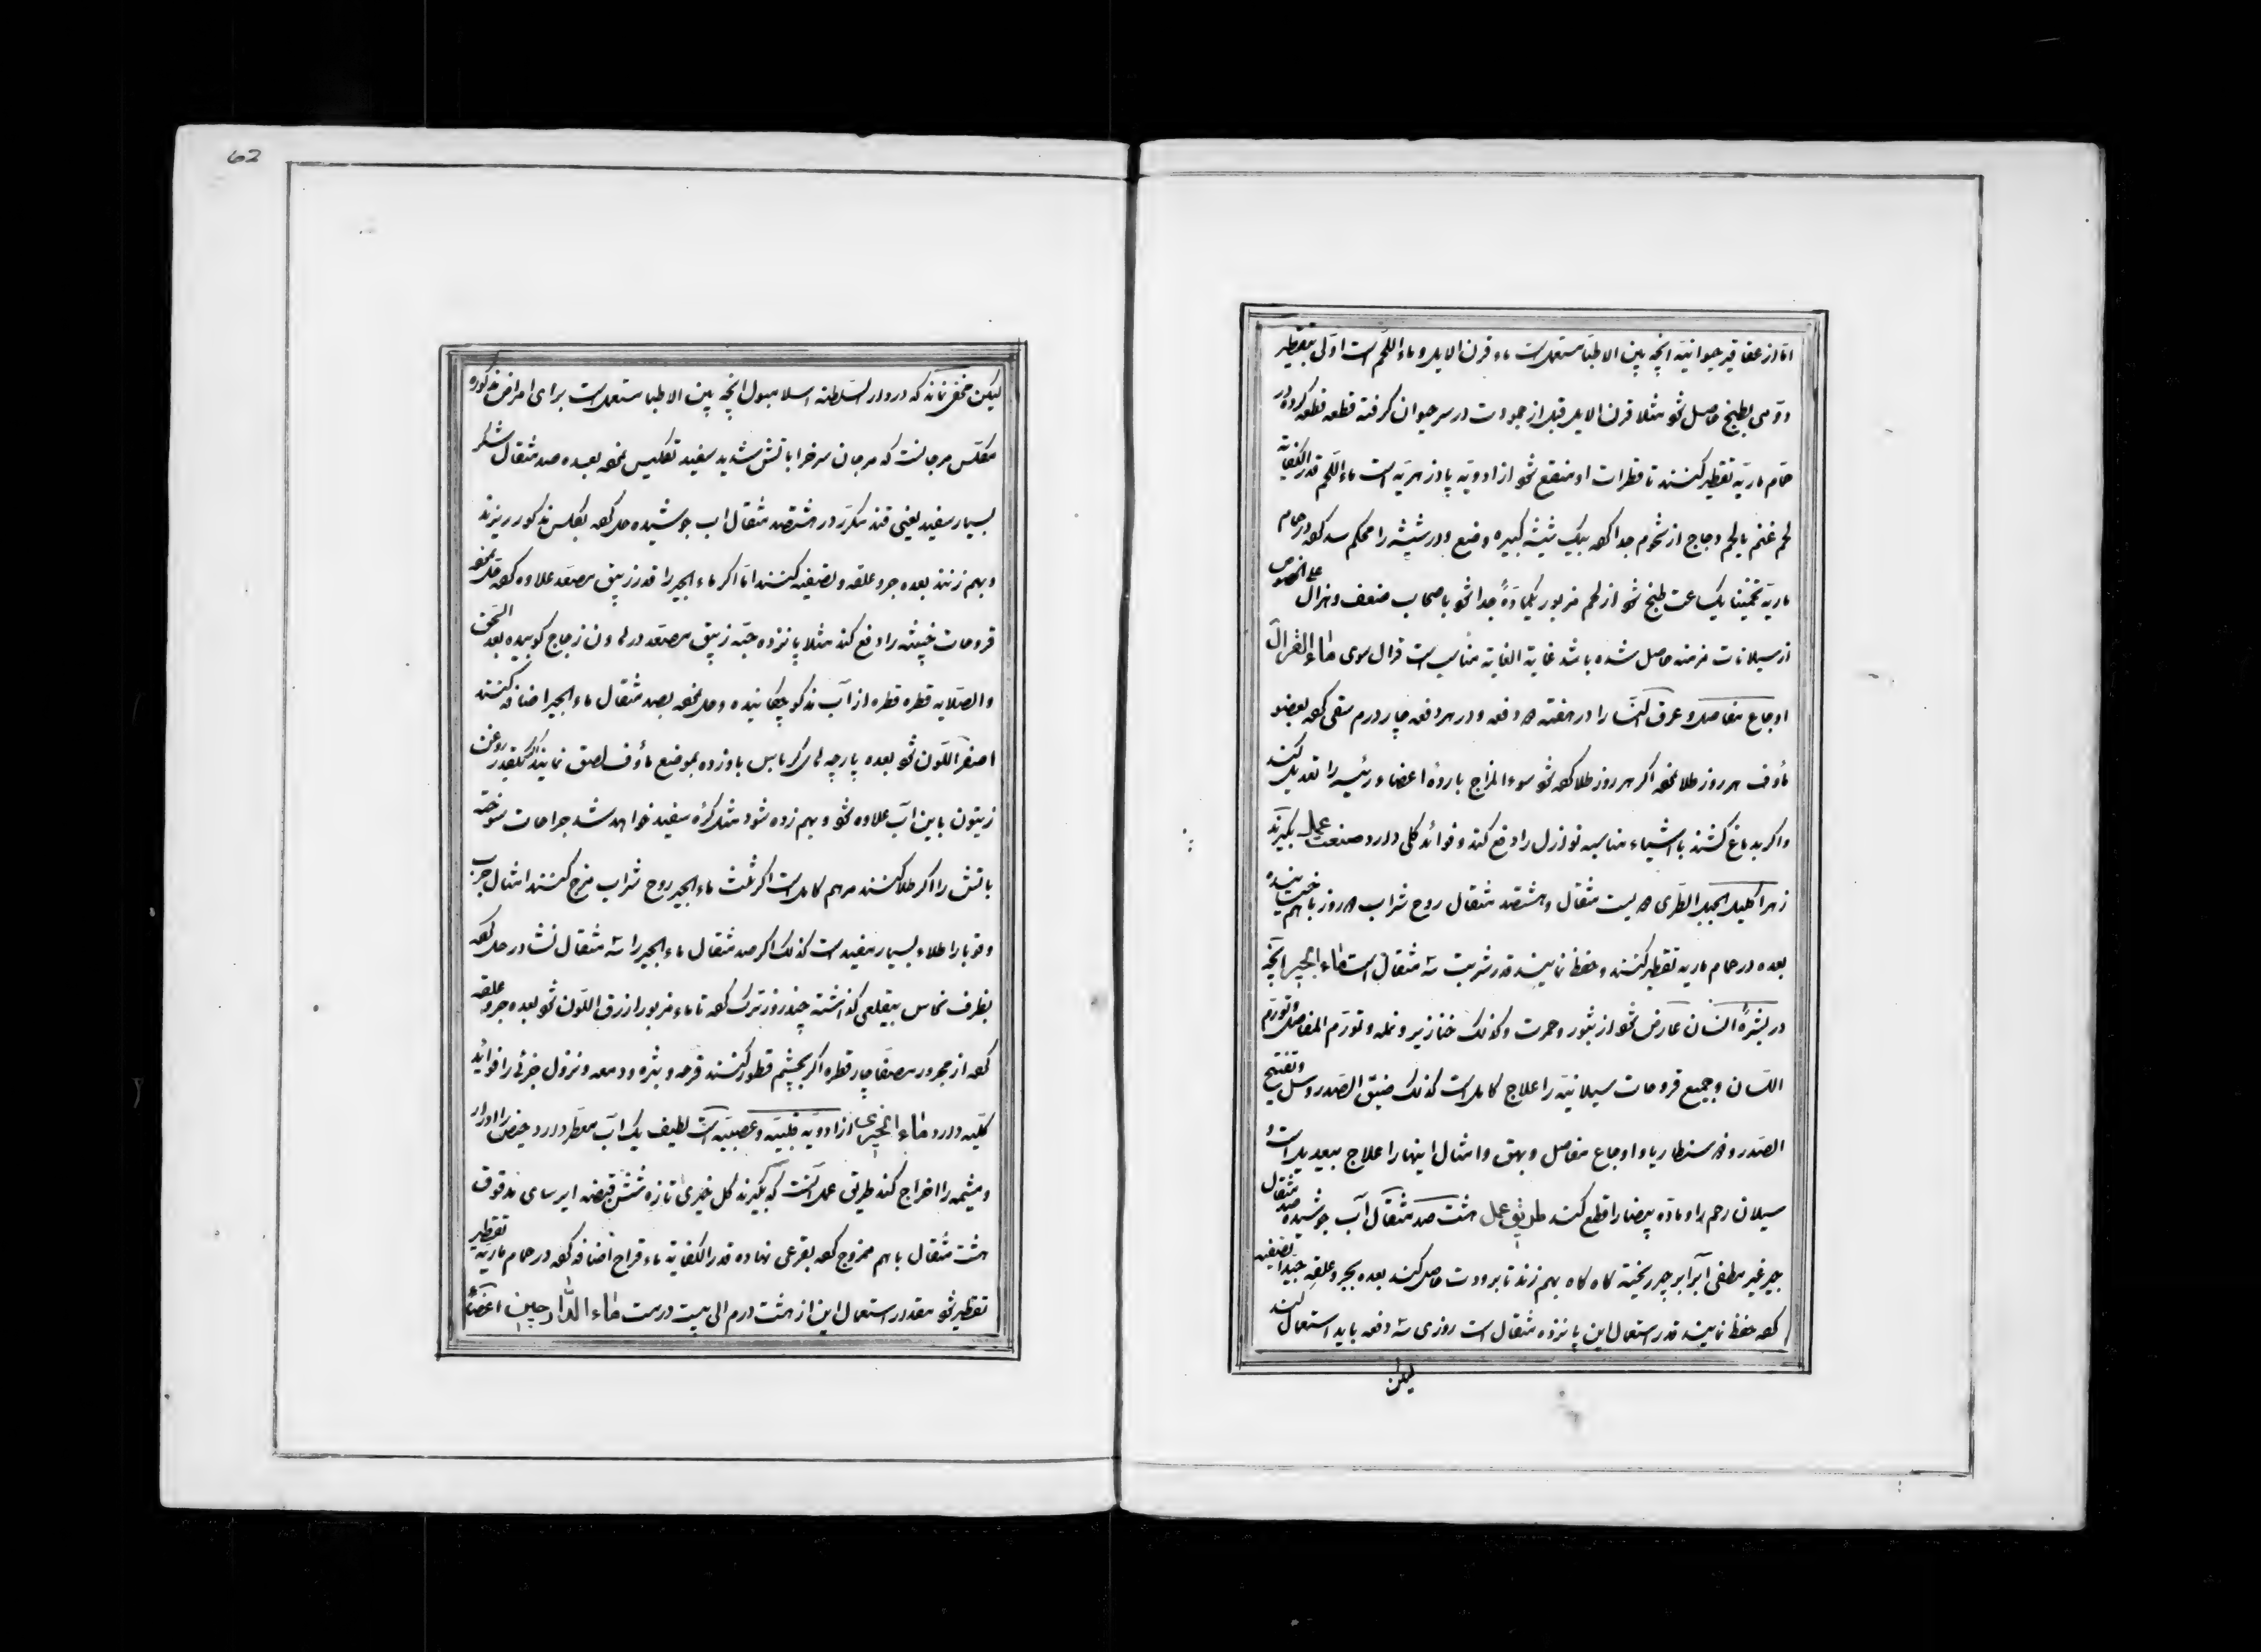 اما از عقاقیر حیوانیه انچه بین الاطبا مستعملست ماء قرن الایل و ماء اللحم است اولی بتقطیر
دومی بطبخ حاصل شو مثلا قرن الایل قبل از جمودت در سر حیوان کرفته قطعه قطعه کرده در
حمام ماریه تقطیر کنند تا قطرات او منقع شو از ادویه پادزهریه است ماء اللحم قدر الکفایة
لحم غنم یا لحم دجاج از شحوم جدا کعه بیک شیشه کبیره وضع و در شیشه را محکم سد کعه در حمام
ماریه تخمینا یک ساعت طبخ شو از لحم مزبور یکماده جدا شو باصحاب ضعف و هزال علی الخصوص
از سیلانات مزمنه حاصل شده باشد غایة الغایة مناسب است قرال سوی ماء القرال
اوجاع مفاصل و عرق النسا را در هفته دفعه و در هر دفعه چار درم سقی کعه بعضو
مأوف هر روز طلا نمعه اکر هر روز طلا کعه شو سوء المزاج بارده اعضاء رئیسه را تعدیل کند
و اکر بدماغ کشند باشیاء مناسبه نوازل را دفع کند و فوائد کلی دارد صنعت عمل بکیرند
زهر اکلیل الجبل الطری بیست مثقال و هشتصد مثقال روح شراب روز باهم خیسانیده
بعده در حمام ماریه تقطیر کنند و حفظ نمایند قدر شربت سه مثقال است ماء الجیر انچه
در بشرهٔ انسان عارض شو از بثور و حمرت و کذلک خنازیر و نمله و تورم المفاصل و تورم
اللسان و جمیع قروحات سیلانیه را علاج کاملست کذلک ضیق الصدر و سل و تفتیح
الصدر و سنطاریا و اوجاع مفاصل و بهق و امثال اینها را علاج بیعدیلست و
سیلان رحم را و ماده بیضا را قطع کند طریق عمل هشت صد مثقال آب جوشیده صد مثقال
جیر غیر مطفی آبرا بر جیر ریخته کاه کاه بهم زند تا برودت حاصل کند بعده بجر و علقه جیدا تصفیه
کعه حفظ نمایند قدر استعمال این پانزده مثقال است روزی سه دفعه باید استعمال کند
لیکن
62
لیکن مخفی نماند که در دار السلطنه اسلامبول انچه بین الاطبا مستعملست برای امراض مذکوره
مکلس مرجانست که مرجان سرخرا باتش شدید سفید تکلیس نمعه بعده صد مثقال شکر
بسیار سفید یعنی قند مکرر در هشتصد مثقال اب جوشیده حل کعه بکلس مذکور ریزند
و بهم زنند بعده جر و علقه و تصفیه کنند اما اکر ماء الجیر را قدر زیبق مصعد علاوه کعه حل نمعه
قروحات خبیثه را دفع کند مثلا پانزده حبه زیبق مصعد در هاون زجاج کوبیده بعد السحق
والصلایه قطره قطره از آب مذکور چکانیده و حل نمعه بصد مثقال ماء الجیر اضافه کنند
اصفر اللون شو بعده پارچه های کرباس باو زده بموضع مأوف لصق نمایند اکر یکقدر روغن
زیتون باین آب علاوه شو و بهم زده شود مثل کرهٔ سفید خواهد شد جراحات سوخته
باتش را اکر طلا کنند مرهم کاملست اکر ثلث ماء الجیر روح شراب مزج کنند امثال جرب
و قوبا را طلاء بسیار مفید است کذلک اکر صد مثقال ماء الجیر را سه مثقال نشادر حل کعه
بظرف نحاس بیقلعی کذاشته چند روز ترک کعه تا ماء مزبور ازرق اللون شو بعده جر و علقه
کعه از مجرور مصفا چار قطره اکر بچشم قطور کنند قرحه و بثره و دمعه و نزول جزئی را فوائد
کلیه دارد ماء الخیری از ادویه قلبیه و عصبیه است لطیف یک آب معطر دارد حیض را ادرار
و مشیمه را اخراج کند طریق عمل آنست که بکیرند کل خیری تازه شش قبضه ایرسای مدقوق
هشت مثقال باهم ممزوج کعه بقرعی نهاده قدر الکفایة ماء قراح اضافه کعه در حمام ماریه تقطیر
تقطیر شو مقدر استعمال این از هشت درم الی بیست درمست ماء الدارچین اعضاء